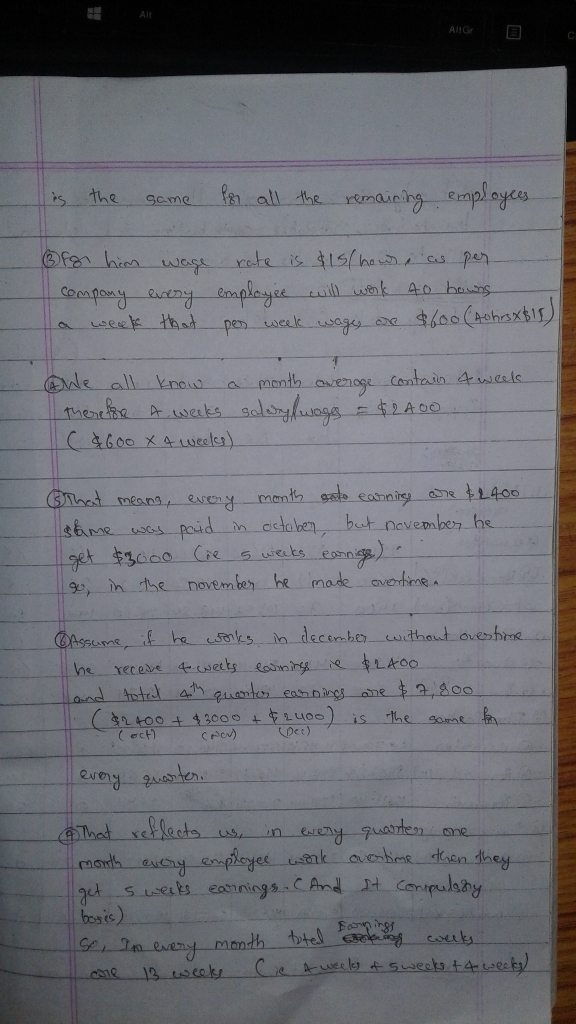 Alt
AltGr
is the same for all the remaining employees
③ For him wage rate is $15/hour, as per
company every employee will work 40 hours
a week that per week wages are $600 (40hrs x $15)
④ We all know a month average contain 4 week
therefore 4 weeks salary/wages = $2400
( $600 x 4 weeks)
⑤ That means, every month earnings are $2400
same was paid in october, but november he
get $3000 (ie 5 weeks earnings).
so, in the november he made overtime.
⑥ Assume, if he works in december without overtime
he receive 4 weeks earnings ie $2400
and total 4th quarter earnings are $7,800
( $2400 + $3000 + $2400) is the same for
(oct) (Nov) (Dec)
every quarter.
That reflects us, in every quarter one
month every employee work overtime then they
get 5 weeks earnings. (And It compulsory
basis)
So, In every month total Earnings weeks
are 13 weeks (ie 4 weeks + 5 weeks + 4 weeks)